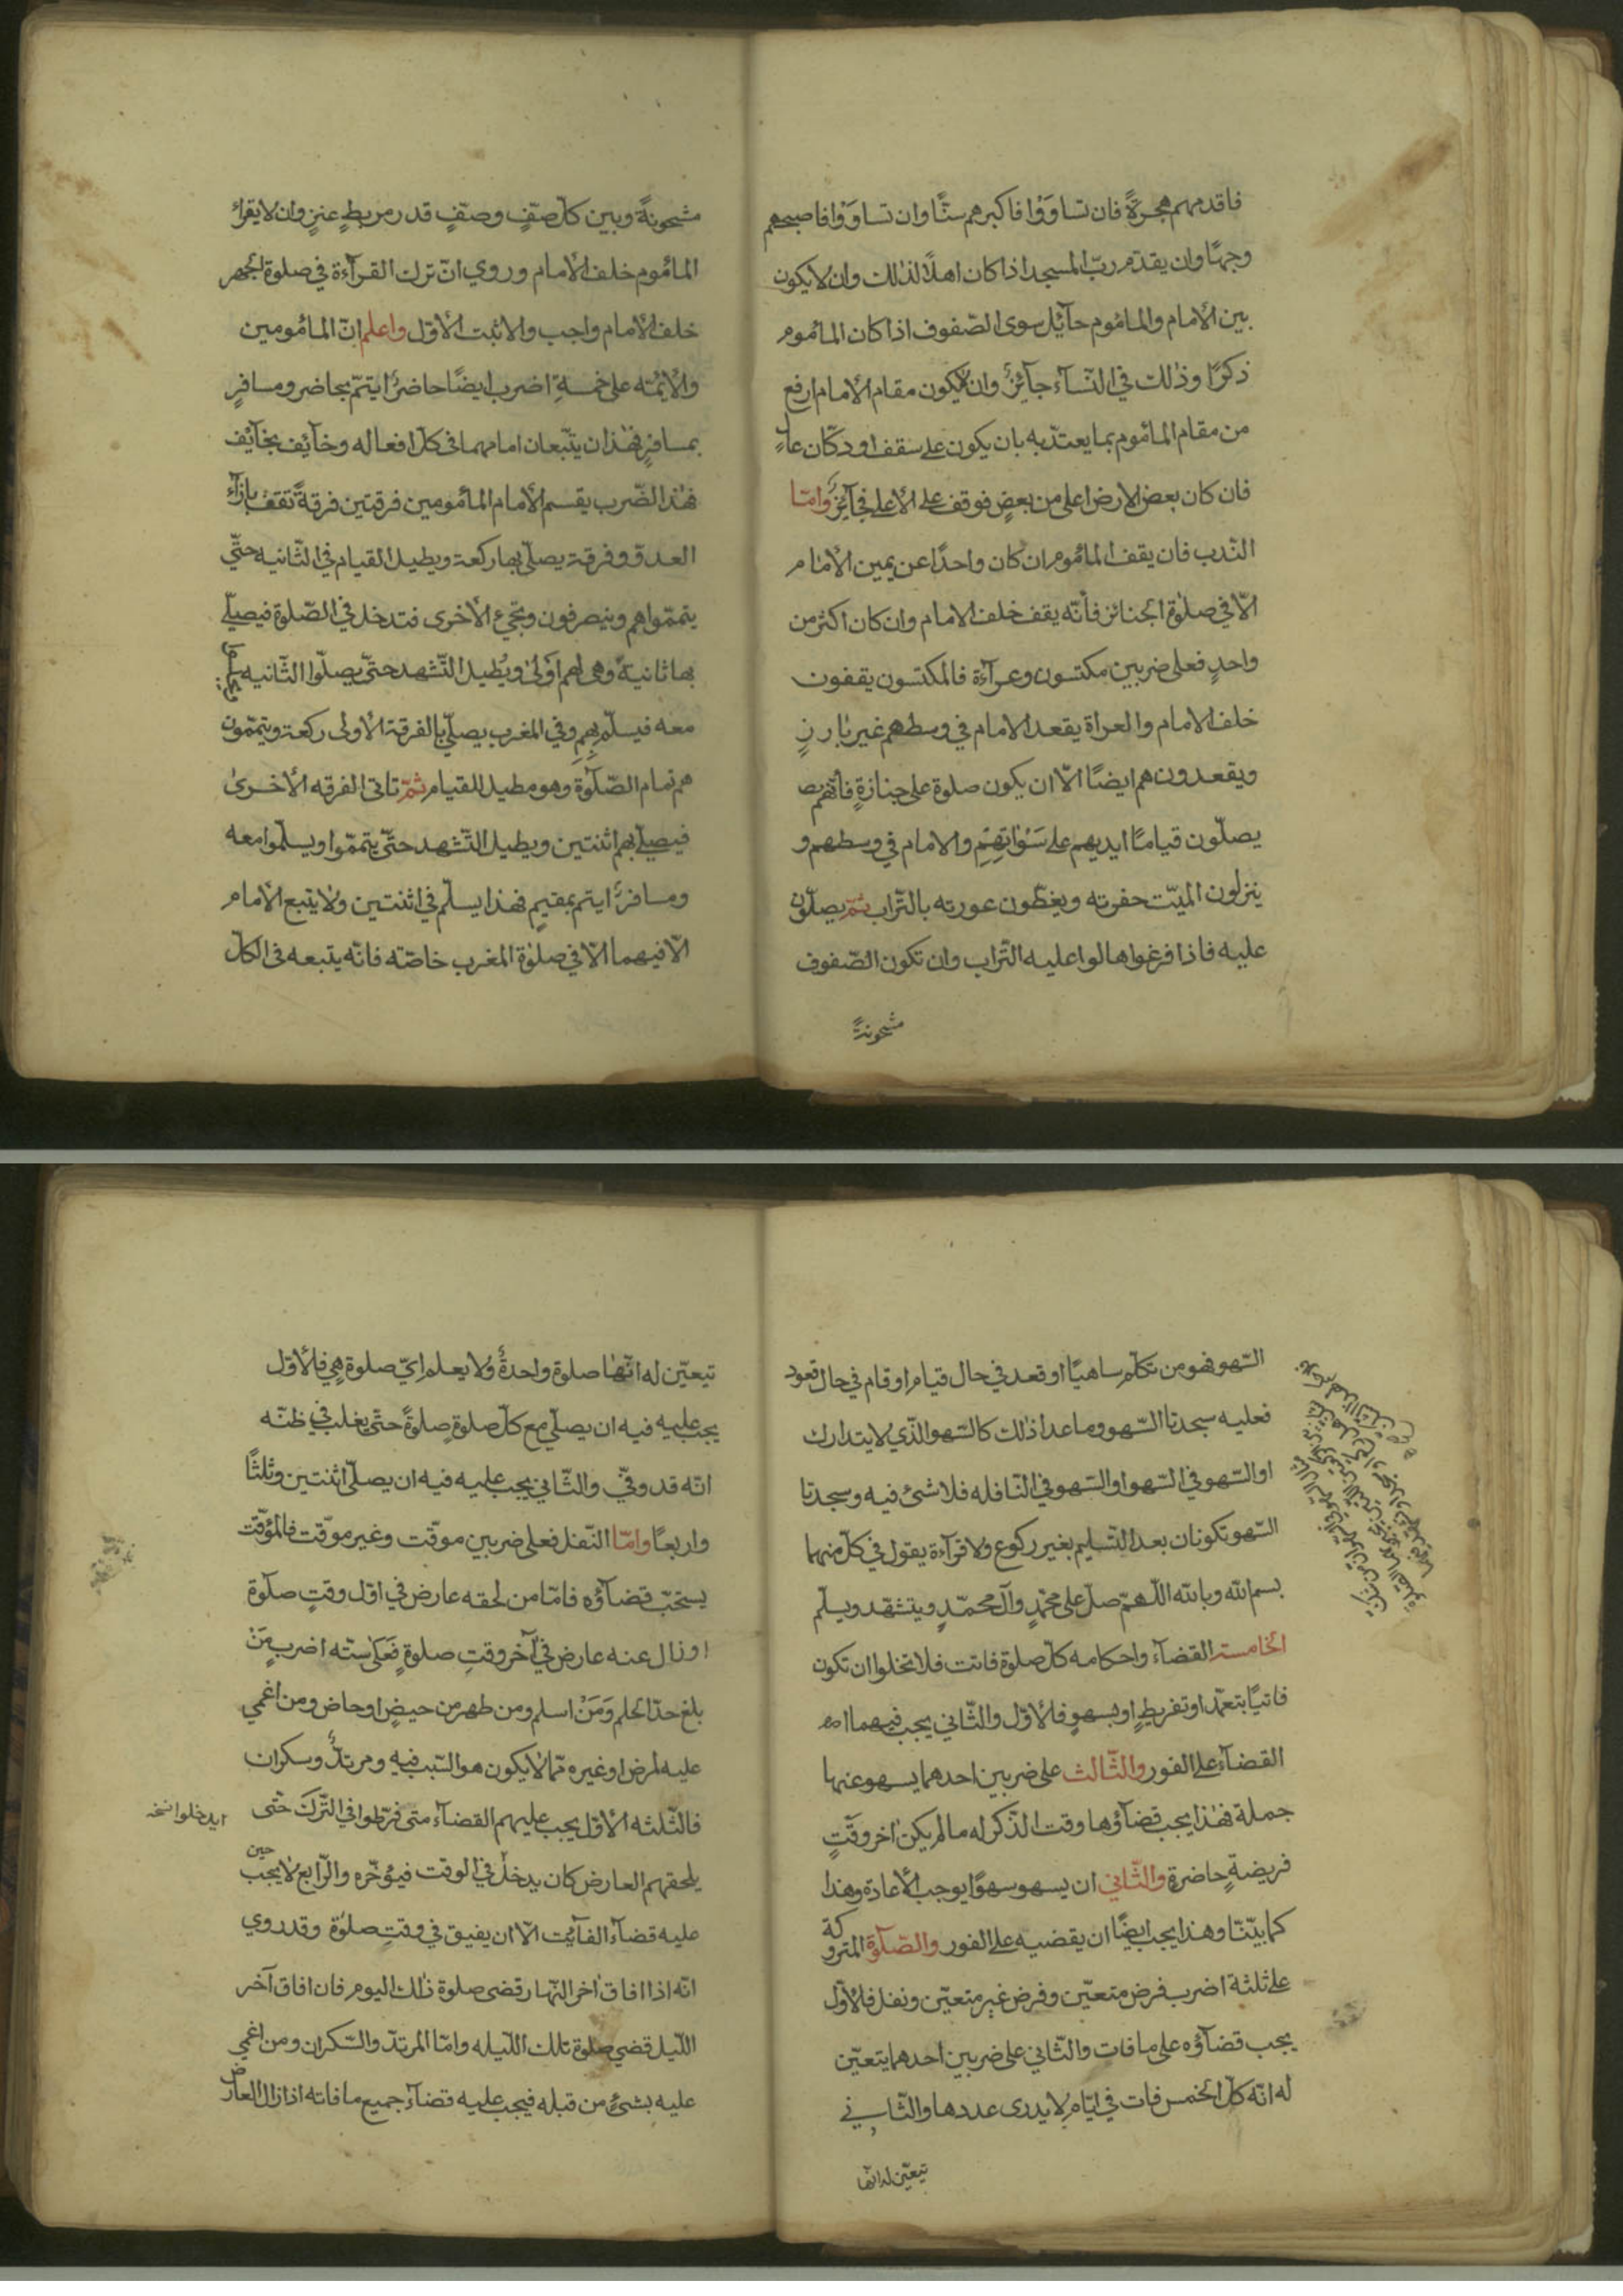 فاقدمهم هجرةً فان تساوَوْا فاكبرهم سنًّا وان تساوَوْا فاصبحهم
وجهًا وان يقدّم ربّ المسجد اذا كان اهلاً لذٰلك وان لا يكون
بين الأمام والمامُوم حآئِل سوى الصّفوف اذا كان المامُوم
ذكرًا وذٰلك في النّسآء جآئِزٌ وان لا يكون مقام الأمام ارفع
من مقام المامُوم بما يعتدّ به بان يكون على سقف او دكّان عالٍ
فان كان بعض الارض اعلى من بعضٍ فوقف على الأعلى فجآئِزٌ وامّا
النّدب فان يقف المامُوم ان كان واحدًا عن يمين الأمام
الّا في صلوٰة الجنائز فأنّه يقف خلف الامام وان كان اكثر من
واحدٍ فعلى ضربين مكتسون وعرآءة فالمكتسون يقفون
خلف الامام والعراة يقعد الامام في وسطهم غير بارزٍ
ويقعدون هم ايضًا الّا ان يكون صلوة على جنازةٍ فأنّهم
يصلّون قيامًا ايديهم على سَوْاٰتِهِمْ والامام في وسطهم و
ينزلون الميّت حفرته ويغطّون عورته بالتّراب ثمّ يصلّون
عليه فاذا فرغوا هالوا عليه التّراب وان تكون الصّفوف
مشحونةً
مشحونةً وبين كلّ صفٍّ وصفٍّ قدر مربط عنزٍ وان لا يقراء
المامُوم خلف الأمام وروي انّ ترك القرآءة في صلوة الجهر
خلف الأمام واجب والاثبت الأوّل واعلم انّ المامُومين
والأئِمّه على خمسةِ اضرب ايضًا حاضرٌ ايتمّ بحاضر ومسافرٍ
بمسافرٍ فهٰذان يتّبعان امامهما في كلّ افعاله وخآئِف بخآئِف
فهٰذا الضّرب يقسم الأمام المامُومين فرقتين فرقةً تقف بازآء
العدوّ وفرقة يصلّى بها ركعة ويطيل القيام في الثّانيه حتّى
يتمّموا هم وينصرفون وتجيء الأخرى فتدخل في الصّلوة فيصلّي
بها ثانيةً وهي لهم اوّلىٰ ويُطيل التّشهد حتّى يصلّوا الثّانيه
معه فيسلّم بِهِمِ وفي المغرب يصلّي بالفرقة الأولى ركعة ويتمّمون
هم تمام الصّلوٰة وهو مطيل للقيام ثمّ تاتى الفرقه الأخرىٰ
فيصلّي بهم اثنتين ويطيل التّشهد حتّى يتمّموا ويسلّموا معه
ومسافرٌ ايتم بمقيمٍ فهٰذا يسلّم في اثنتين ولا يتبع الأمام
الّا فيهما الّا في صلوٰة المغرب خاصّه فانّه يتبعه في الكلّ
السّهو فهو من تكلّم ساهيًا او قعد في حال قيام او قام في حال قعود
فعليه سجدتا السّهو وما عدا ذٰلك كالسّهو الّذي لا يتدارك
او السّهو في السّهو او السّهو في النّافله فلا شئ فيه وسجدتا
السّهو تكونان بعد التّسليم بغير ركوع ولا قرآءة يقول في كلّ منهما
بسم الله وبالله اللّهمّ صل على محمّدٍ وآل محمّدٍ ويتشهّد ويسلّم
الخامسة القضآء واحكامه كلّ صلوة فاتت فلا تخلوا ان تكون
فاتيًا بتعمّد او تفريطٍ او بسهوٍ فالأوّل والثّاني يجب فيهما
القضآء على الفور والثّالث على ضربين احدهما يسهو عنها
جملة فهٰذا يجب قضآؤها وقت الذّكر له ما لم يكن اٰخر وقتِ
فريضةٍ حاضرةٍ والثّاني ان يسهو سهوًا يوجب الأعادة وهذا
كما بيّنّا وهذا يجب ايضًا ان يقضيه على الفور والصّلوٰة المتروكة
على ثلثة اضرب فرض متعيّن وفرض غير متعيّن ونفل فالأوّل
يجب قضآؤه على ما فات والثّاني على ضربين احدهما يتعيّن
له انّه كلّ الخمس فات في ايّامٍ لا يدرى عددها والثّاني
تيعيّن له انّها
تيعيّن له انّهٰا صلوة واحدةً ولا يعلم ايّ صلوة هي فالأوّل
يجب عليه فيه ان يصلّي مع كلّ صلوةٍ صلوةً حتّى يغلب في ظنّه
انّه قد وفّي والثّاني يجب عليه فيه ان يصلّي اثنتين وثلثًا
واربعًا وامّا النّفل فعلى ضربين موقّت وغير موقّت فالموُقّت
يستحّب قضآؤه فامّا من لحقه عارض في اوّل وقتٍ صلوٰة
او زال عنه عارض في آخر وقتِ صلوةٍ فَعَلىٰ ستّه اضربٍ مَنْ
بلغ حدّ الحلم وَمَنْ اسلم ومن طهر من حيضٍ او حاض ومن اغمي
عليه لمرض او غيره ممّا لا يكون هو السّبب فيه ومرتدٌّ وسكران
فالثّلثه الأوّل يجب عليهم القضآء متى فرّطوا في التّرك حتّى
ايدخلوا نسخه
يلحقهم العارض كان يدخل في الوقت فيؤخّره والرّابع لا يجب
حين
عليه قضآء الفآئِت الّا ان يفيق في وقتِ صلوٰة وقد روي
انّه اذا افاق اٰخر النّهار قضى صلوة ذٰلك اليوم فان افاق آخر
اللّيل قضي صلوٰة تلك اللّيله وامّا المرتدّ والسّكران ومن اغمي
عليه بشئٍ من قبله فيجب عليه قضآء جميع ما فاته اذا زال العارض